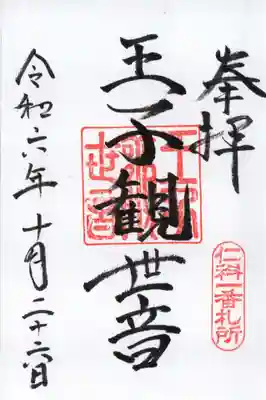 奉拝
仁科一番札所
王子観世音
令和六年十月二十六日